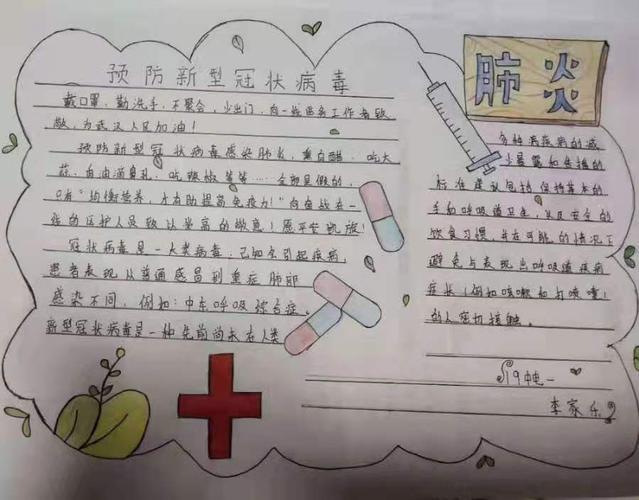 预防新型冠状病毒
戴口罩、勤洗手、不聚会、少出门,向一线医务工作者致
敬,为武汉人民加油!
预防新型冠状病毒感染肺炎,熏白醋、吃大
蒜、香油滴鼻孔、吃辣椒等等……全部是假的,
只有"均衡营养,才有助提高免疫力!"向奋战在一
线的医护人员致以崇高的敬意!愿平安凯旋!
冠状病毒是一大类病毒,已知会引起疾病,
患者表现从普通感冒到重症肺部
感染不同,例如:中东呼吸综合症。
新型冠状病毒是一种先前尚未在人类
肺炎
各种疾病的减
少暴露和传播的
标准建议包括保持基本的
手和呼吸道卫生,以及安全的
饮食习惯,并在可能的情况下
避免与表现出呼吸道疾病
症状(例如咳嗽和打喷嚏)
的人密切接触。
19中电一
李家乐